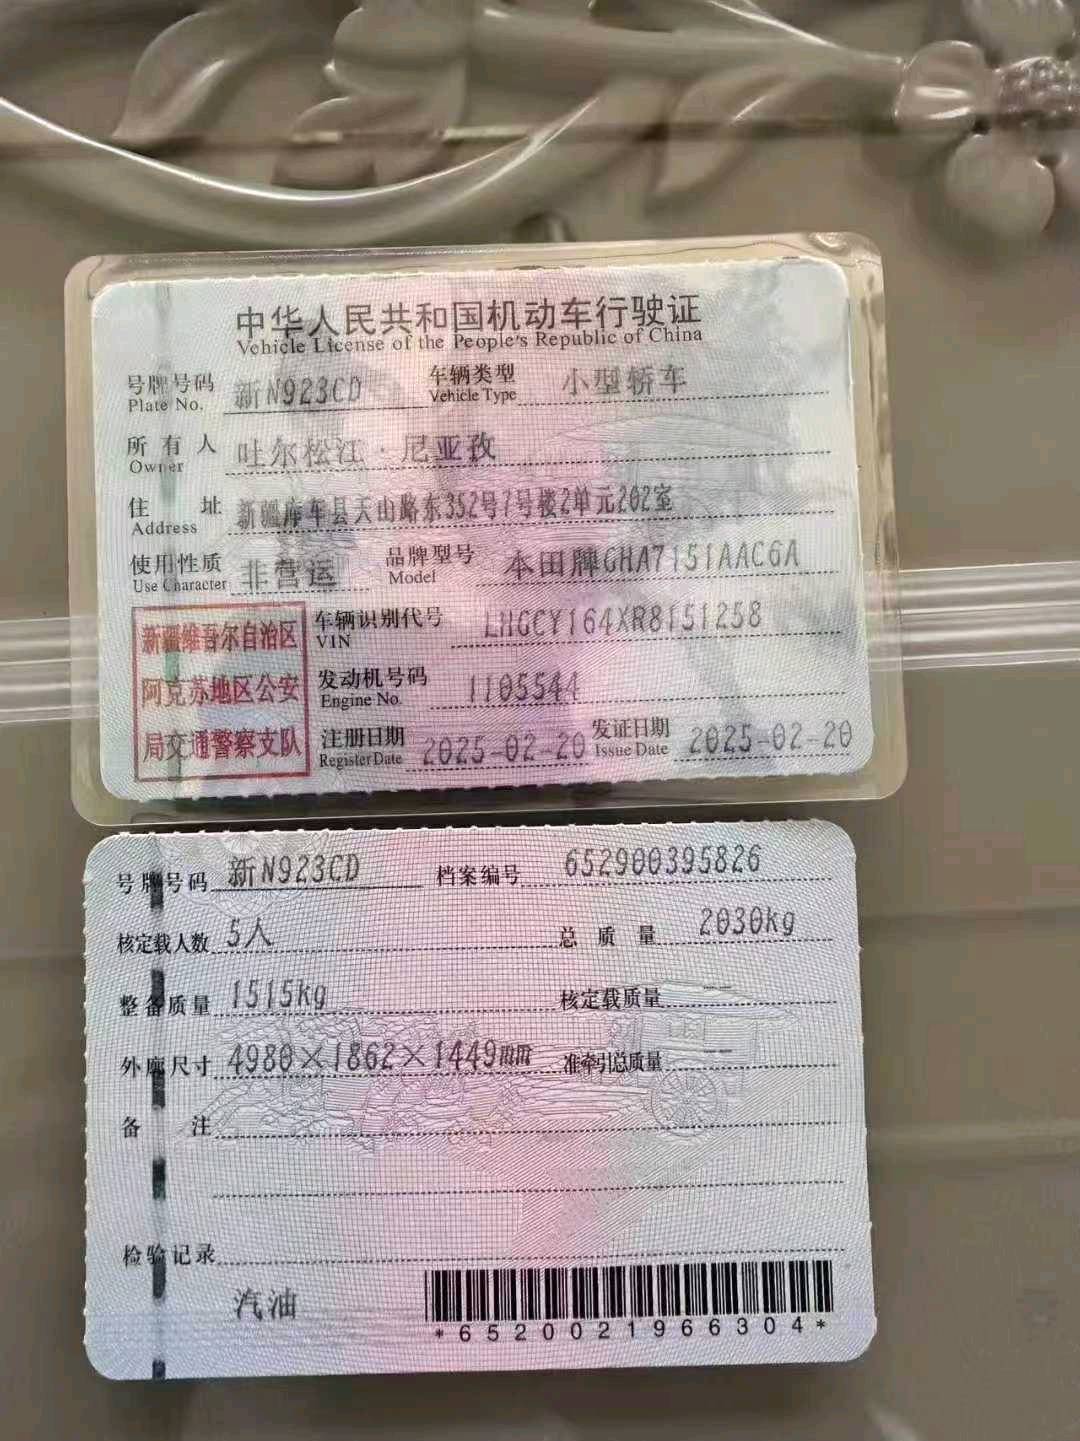 中华人民共和国机动车行驶证
Vehicle License of the People's Republic of China
号牌号码 新N923CD 车辆类型 小型轿车
Plate No. Vehicle Type
所有人 吐尔松江·尼亚孜
Owner
住址 新疆库车县天山路东352号7号楼2单元202室
Address
使用性质 非营运 品牌型号 本田牌GHA7151AAC6A
Use Character Model
新疆维吾尔自治区
阿克苏地区公安
局交通警察支队
车辆识别代号 LHGCY164XR8151258
VIN
发动机号码 1105544
Engine No.
注册日期 2025-02-20 发证日期 2025-02-20
Register Date Issue Date
号牌号码 新N923CD 档案编号 652900395826
核定载人数 5人 总质量 2030kg
整备质量 1515kg 核定载质量 --
外廓尺寸 4980×1862×1449mm 准牵引总质量 --
备注
检验记录
汽油
*6520021966304*